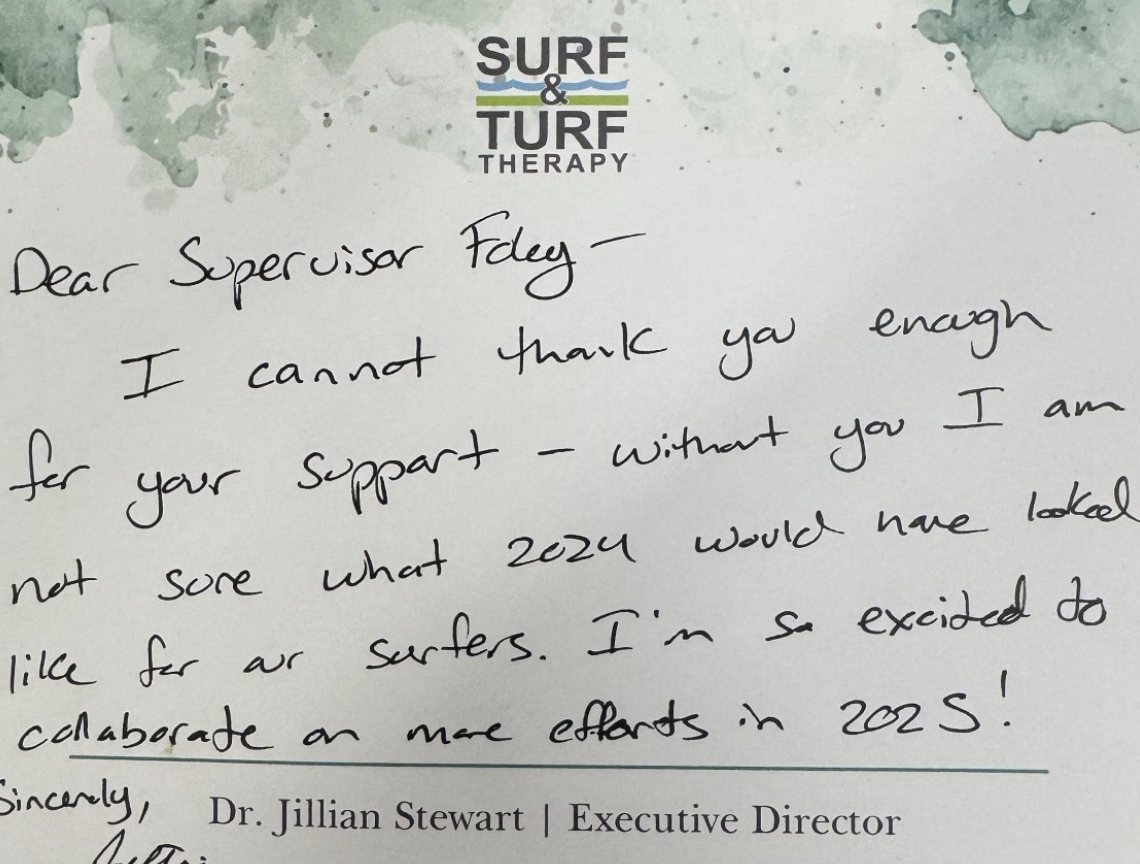 SURF
&
TURF
THERAPY
Dear Supervisor Foley —
I cannot thank you enough
for your support — without you I am
not sure what 2024 would have looked
like for our surfers. I'm so excited to
collaborate on more efforts in 2025!
Sincerely,
Dr. Jillian Stewart | Executive Director